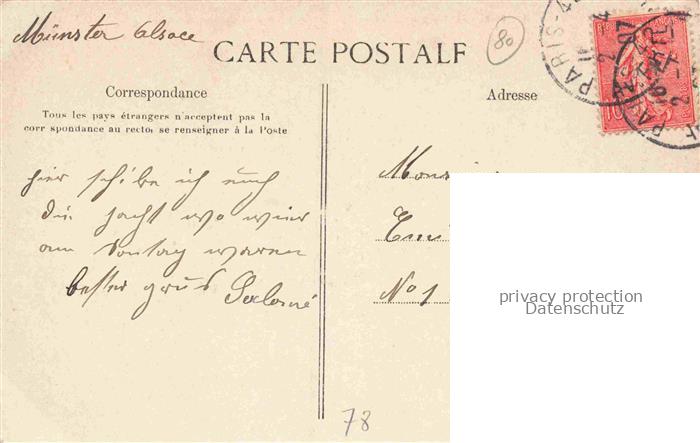 Münster Alsace
80
CARTE POSTALE
PARIS
2 07
10
Correspondance
Tous les pays étrangers n'acceptent pas la
correspondance au recto, se renseigner à la Poste
Adresse
hier schibe ich euch
die wo wier
am Sontag waren
bester grus Salomé
Emi
No 1
privacy protection
Datenschutz
78